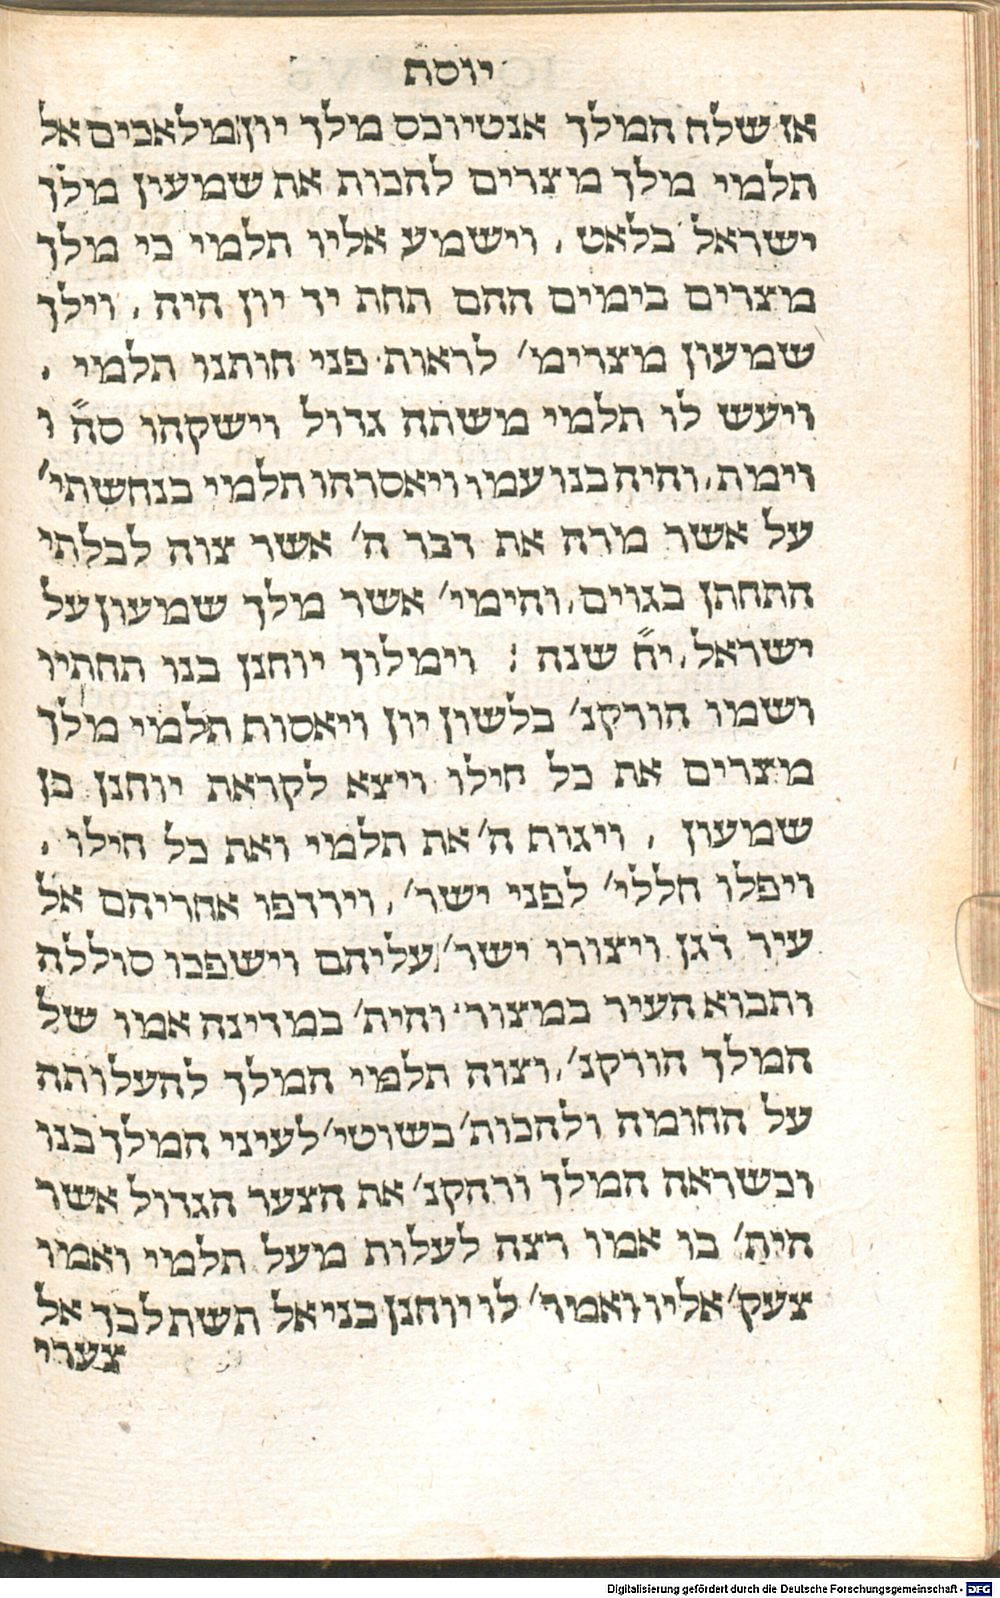 יוסף
אז שלח המלך אנטיוכס מלך יון מלאכים אל
תלמי מלך מצרים להכות את שמעון מלך
ישראל בלאט, וישמע אליו תלמי כי מלך
מצרים בימים ההם תחת יד יון היה, וילך
שמעון מצרימ׳ לראות פני חותנו תלמי,
ויעש לו תלמי משתה גדול וישקהו ס״ה ו
וימת, והיה בנו עמו ויאסרהו תלמי בנחשתי׳
על אשר מרה את דבר ה׳ אשר צוה לבלתי
התחתן בגוים, והימי׳ אשר מלך שמעון על
ישראל, י״ח שנה : וימלוך יוחנן בנו תחתיו
ושמו הורקנ׳ בלשון יון ויאסות תלמי מלך
מצרים את כל חילו ויצא לקראת יוחנן בן
שמעון, ויגות ה׳ את תלמי ואת כל חילו,
ויפלו חללי׳ לפני ישר׳, וירדפו אחריהם אל
עיר דגן ויצורו ישר׳ עליהם וישפכו סוללה
ותבוא העיר במצור, והית׳ במדינה אמו של
המלך הורקנ׳, וצוה תלמי המלך להעלותה
על החומה ולהכות׳ בשוטי׳ לעיני המלך בנו
וכשראה המלך ורהקנ׳ את הצער הגדול אשר
הית׳ בו אמו רצה לעלות מעל תלמי ואמו
צעק׳ אליו ואמר׳ לו יוחנן בני אל תשת לבך אל
צערי
Digitalisierung gefördert durch die Deutsche Forschungsgemeinschaft - DFG